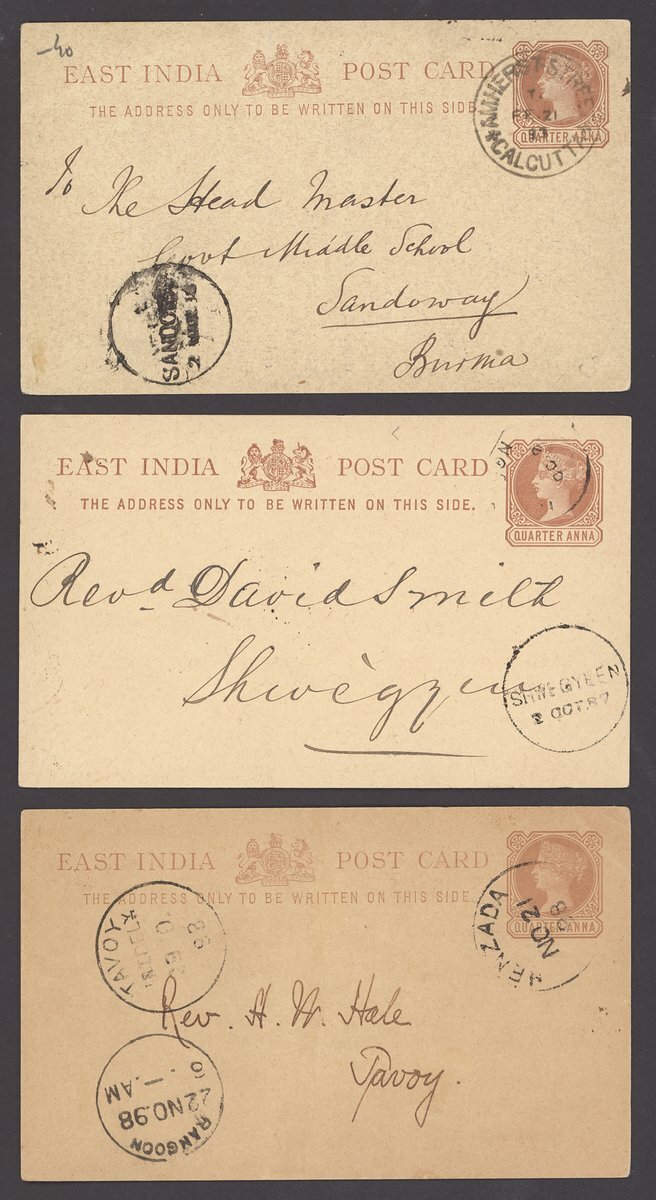 -40
EAST INDIA POST CARD
THE ADDRESS ONLY TO BE WRITTEN ON THIS SIDE.
QUARTER ANNA
AMHERST STREE
FE 21
93
*CALCUTTA
To The Head Master
Govt Middle School
Sandoway
Burma
SANDOWA
2
EAST INDIA POST CARD
THE ADDRESS ONLY TO BE WRITTEN ON THIS SIDE.
QUARTER ANNA
Revd David Smith
Shwègyeen
SHWEGYEEN
2 OCT 87
EAST INDIA POST CARD
THE ADDRESS ONLY TO BE WRITTEN ON THIS SIDE.
QUARTER ANNA
HENZADA
NO 21
98
TAVOY
98
Rev. H. W. Hale
Tavoy.
RANGOON
22 NO.98
6.-AM